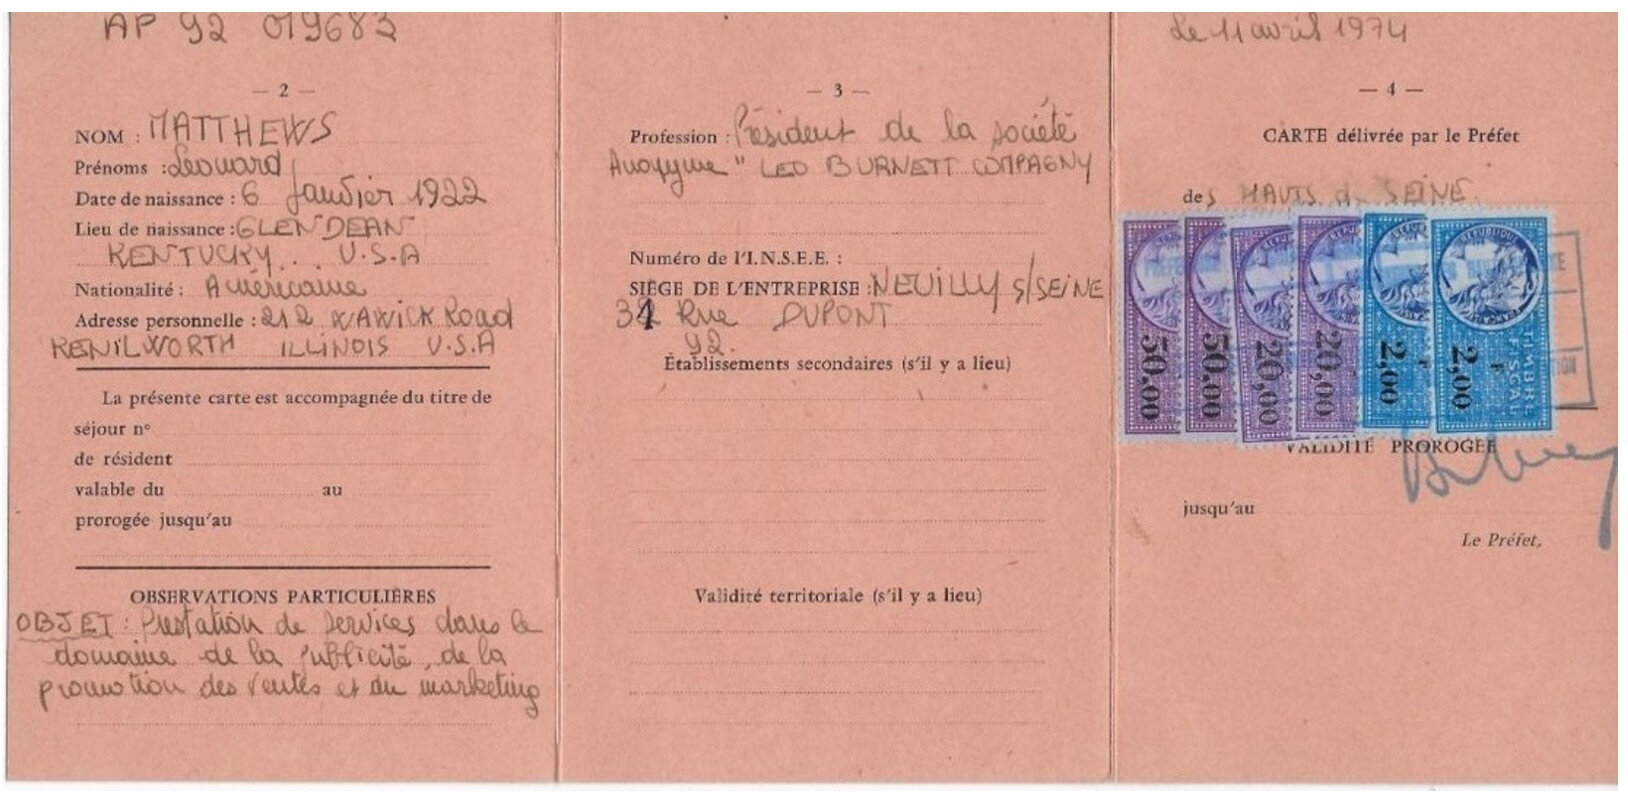 AP 92 019683
— 2 —
NOM : MATTHEWS
Prénoms : Leonard
Date de naissance : 6 Janvier 1922
Lieu de naissance : GLENDEAN
KENTUCKY . . U.S.A
Nationalité : Américaine
Adresse personnelle : 212 WAWICK Road
KENILWORTH ILLINOIS U.S.A
La présente carte est accompagnée du titre de
séjour nº
de résident
valable du au
prorogée jusqu'au
OBSERVATIONS PARTICULIÈRES
OBJET : Prestation de Services dans le
domaine de la publicité, de la
promotion des ventes et du marketing
— 3 —
Profession : Président de la société
Anonyme " LEO BURNETT COMPAGNY
Numéro de l'I.N.S.E.E. :
SIÈGE DE L'ENTREPRISE : NEUILLY s/SEINE
Rue DUPONT
92.
Établissements secondaires (s'il y a lieu)
Validité territoriale (s'il y a lieu)
Le 11 avril 1974
— 4 —
CARTE délivrée par le Préfet
des HAUTS de SEINE
50.00
50.00
20,00
20,00
2,00
REPUBLIQUE
TIMBRE FISCAL
F
2,00
VALIDITÉ PROROGÉE
jusqu'au
Le Préfet,